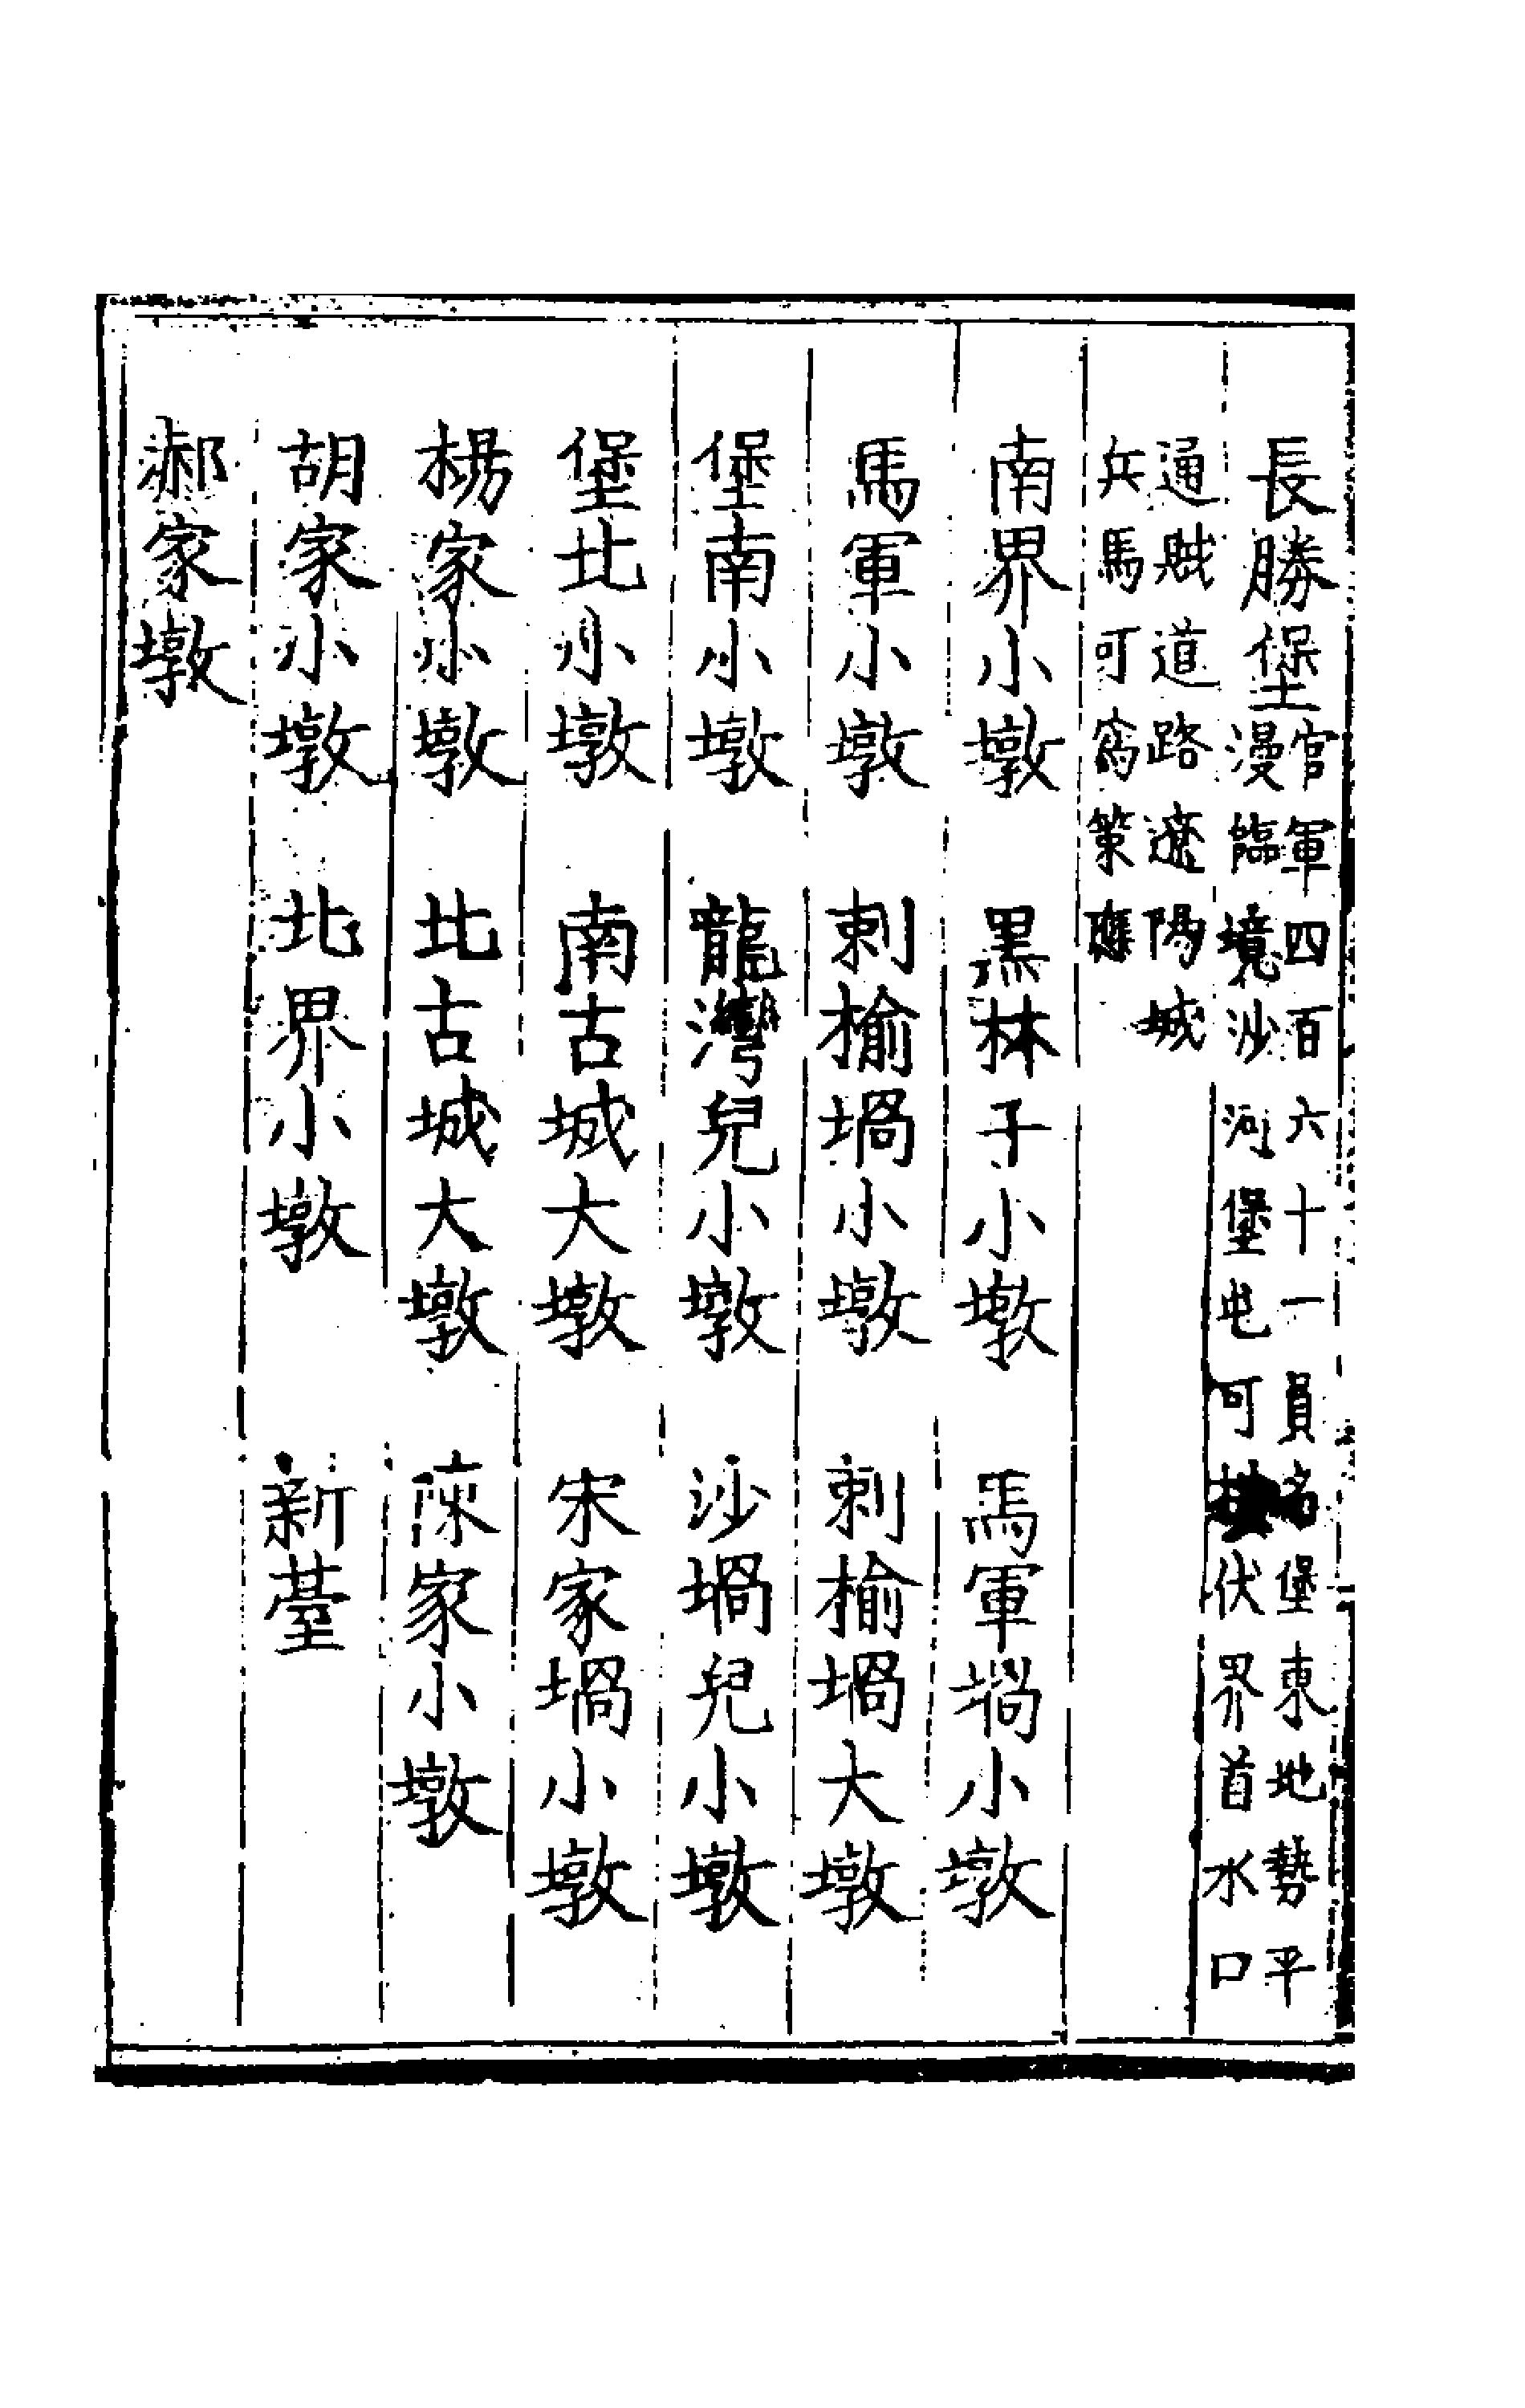 長勝堡官軍四百六十一員名堡東地勢平
漫臨境沙河堡屯可按伏界首水口
通賊道路遼陽城
兵馬可為策應
南界小墩　黑林子小墩　馬軍堝小墩
馬軍小墩　刺榆堝小墩　刺榆堝大墩
堡南小墩　龍灣兒小墩　沙堝兒小墩
堡北小墩　南古城大墩　宋家堝小墩
楊家小墩　北古城大墩　陳家小墩
胡家小墩　北界小墩　新臺
郝家墩